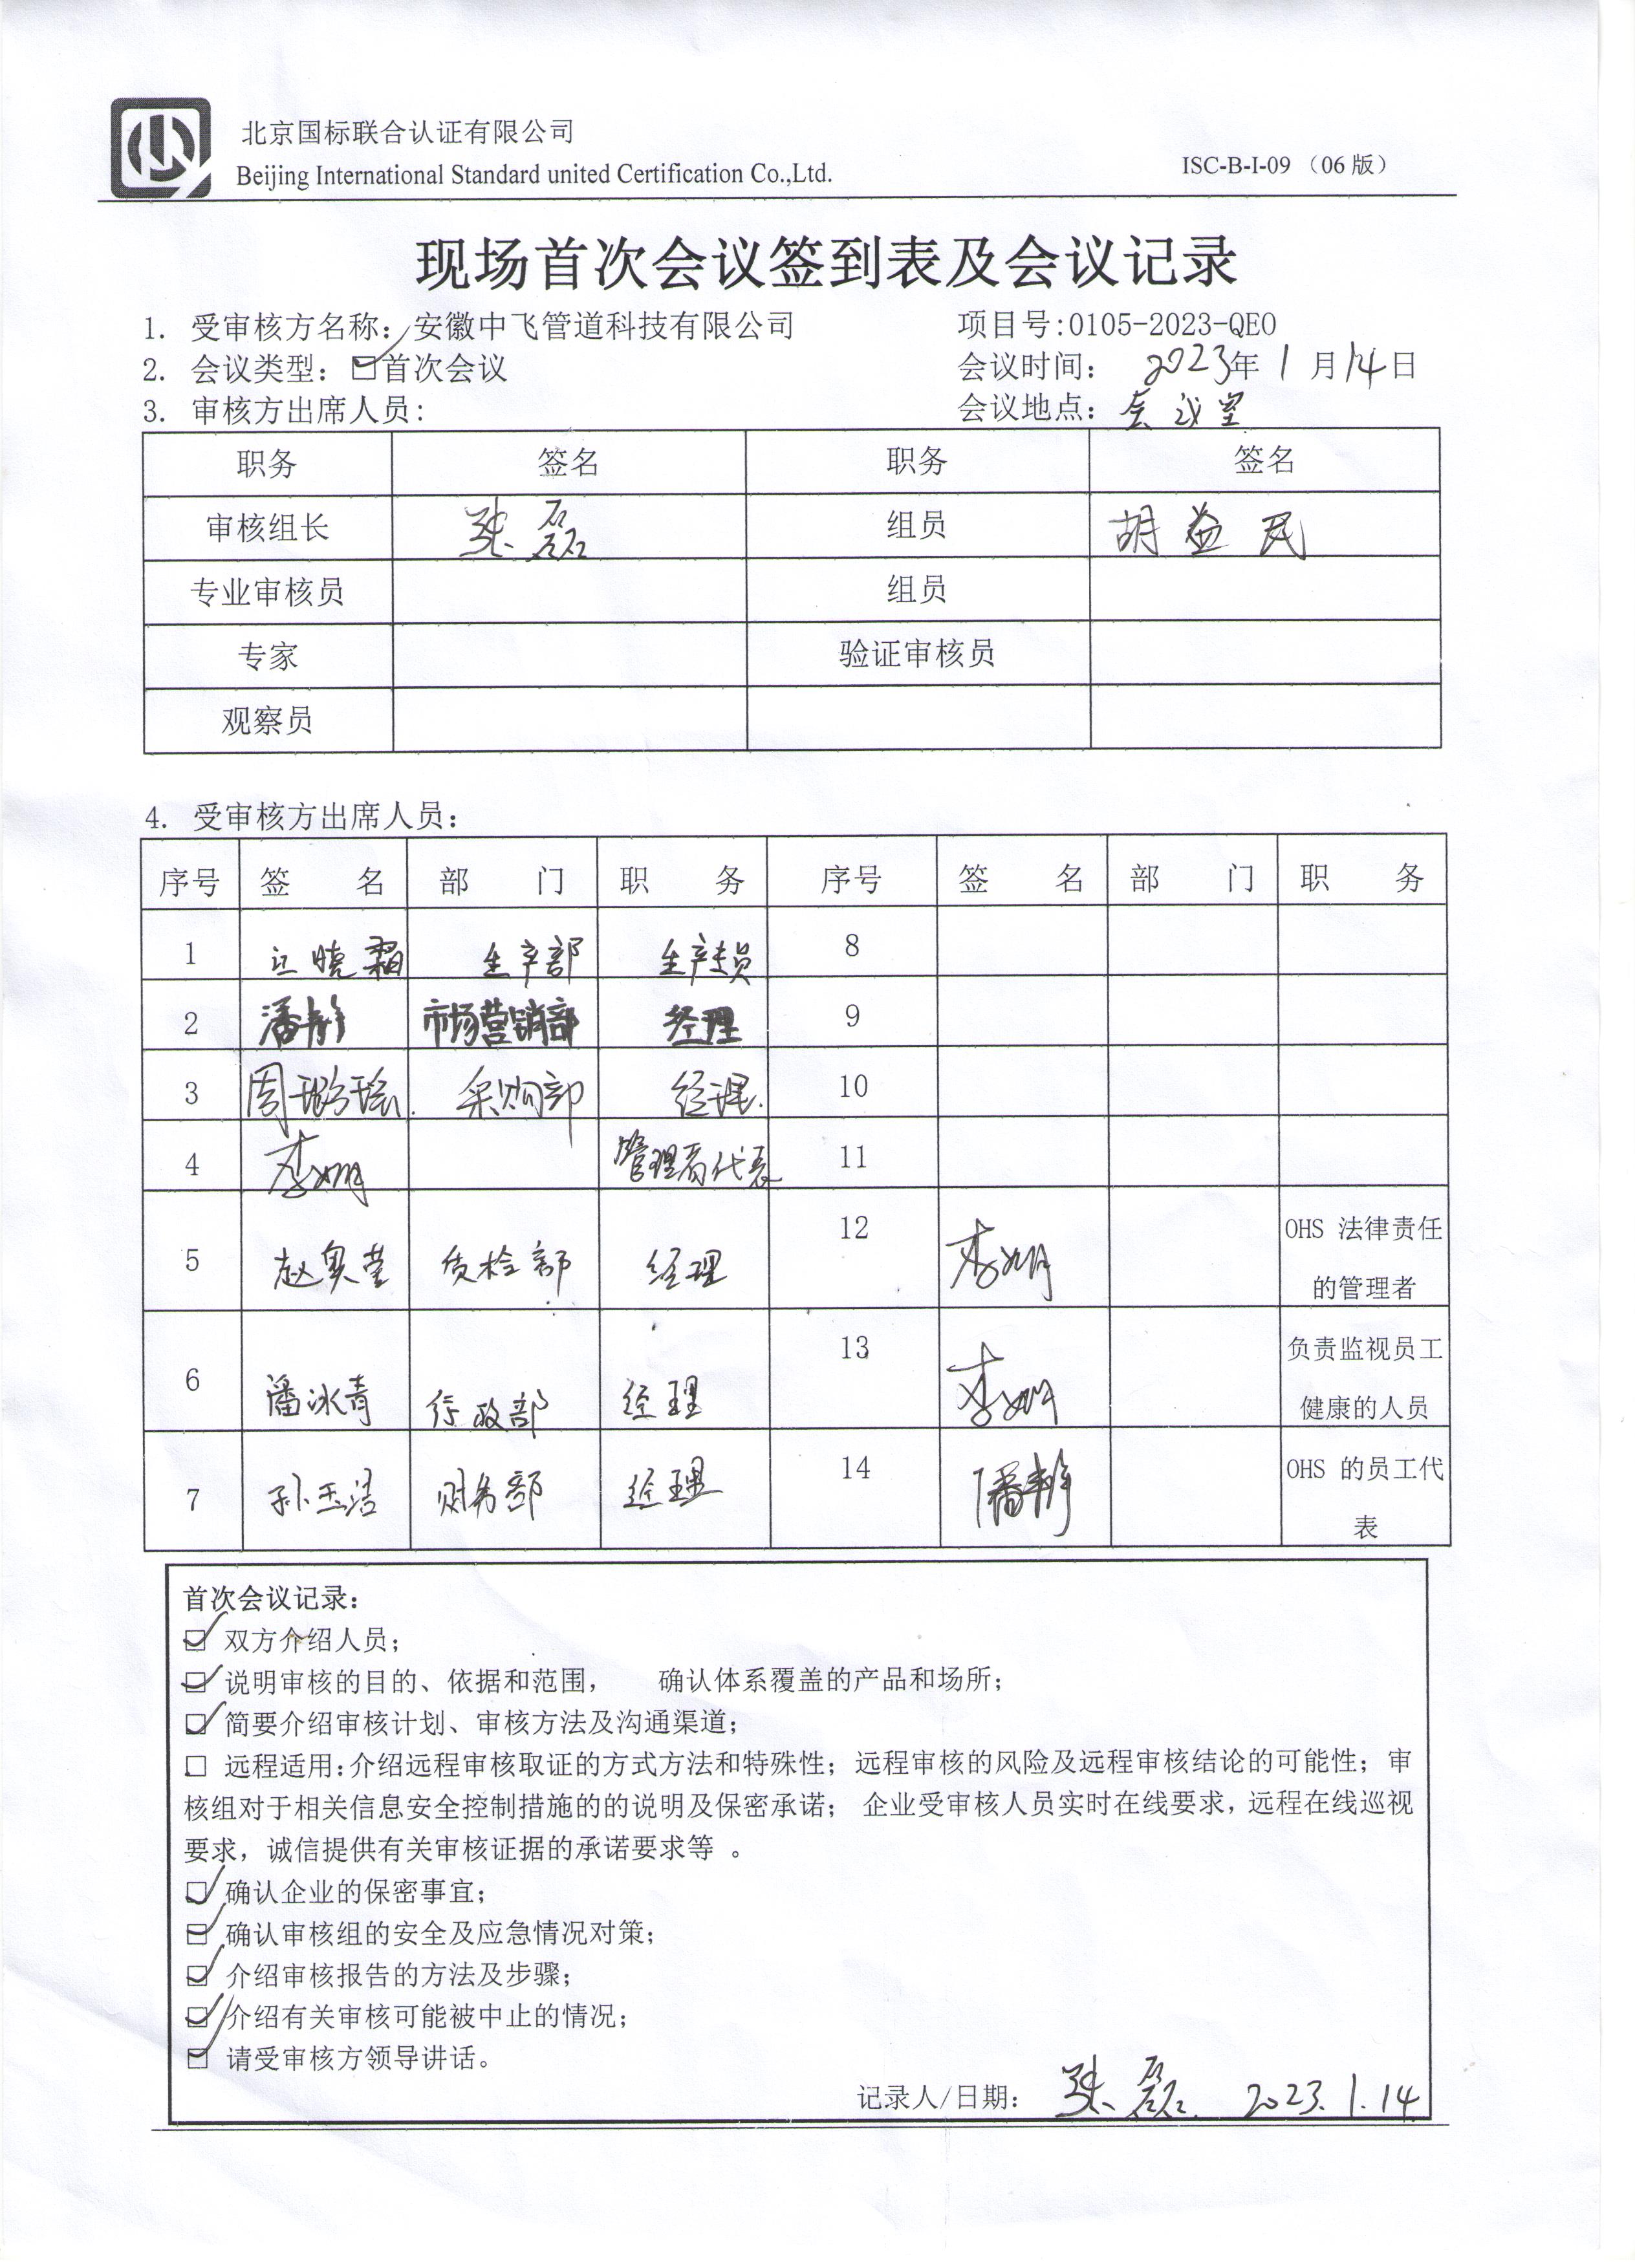 北京国标联合认证有限公司
Beijing International Standard united Certification Co.,Ltd.
ISC-B-I-09 （06 版）
现场首次会议签到表及会议记录
1. 受审核方名称：安徽中飞管道科技有限公司 项目号:0105-2023-QEO
2. 会议类型：☑首次会议 会议时间： 2023年 1 月 14 日
3. 审核方出席人员: 会议地点：会议室
职务 签名 职务 签名
审核组长 张磊 组员 胡益民
专业审核员 组员
专家 验证审核员
观察员
4. 受审核方出席人员：
序号 签 名 部 门 职 务 序号 签 名 部 门 职 务
1 晓霜 生产部 生产专员 8
2 潘静 市场营销部 经理 9
3 周璐瑶 采购部 经理 10
4 李娜 管理者代表 11
5 赵 莹 质检部 经理 12 李娜 OHS 法律责任
的管理者
6 潘冰青 行政部 经理 13 李娜 负责监视员工
健康的人员
7 孙玉洁 财务部 经理 14 潘静 OHS 的员工代
表
首次会议记录：
☑ 双方介绍人员；
☑ 说明审核的目的、依据和范围， 确认体系覆盖的产品和场所；
☑ 简要介绍审核计划、审核方法及沟通渠道；
□ 远程适用：介绍远程审核取证的方式方法和特殊性；远程审核的风险及远程审核结论的可能性；审
核组对于相关信息安全控制措施的的说明及保密承诺； 企业受审核人员实时在线要求，远程在线巡视
要求，诚信提供有关审核证据的承诺要求等 。
☑ 确认企业的保密事宜；
☑ 确认审核组的安全及应急情况对策；
☑ 介绍审核报告的方法及步骤；
☑ 介绍有关审核可能被中止的情况；
☑ 请受审核方领导讲话。
记录人/日期： 张磊 2023.1.14